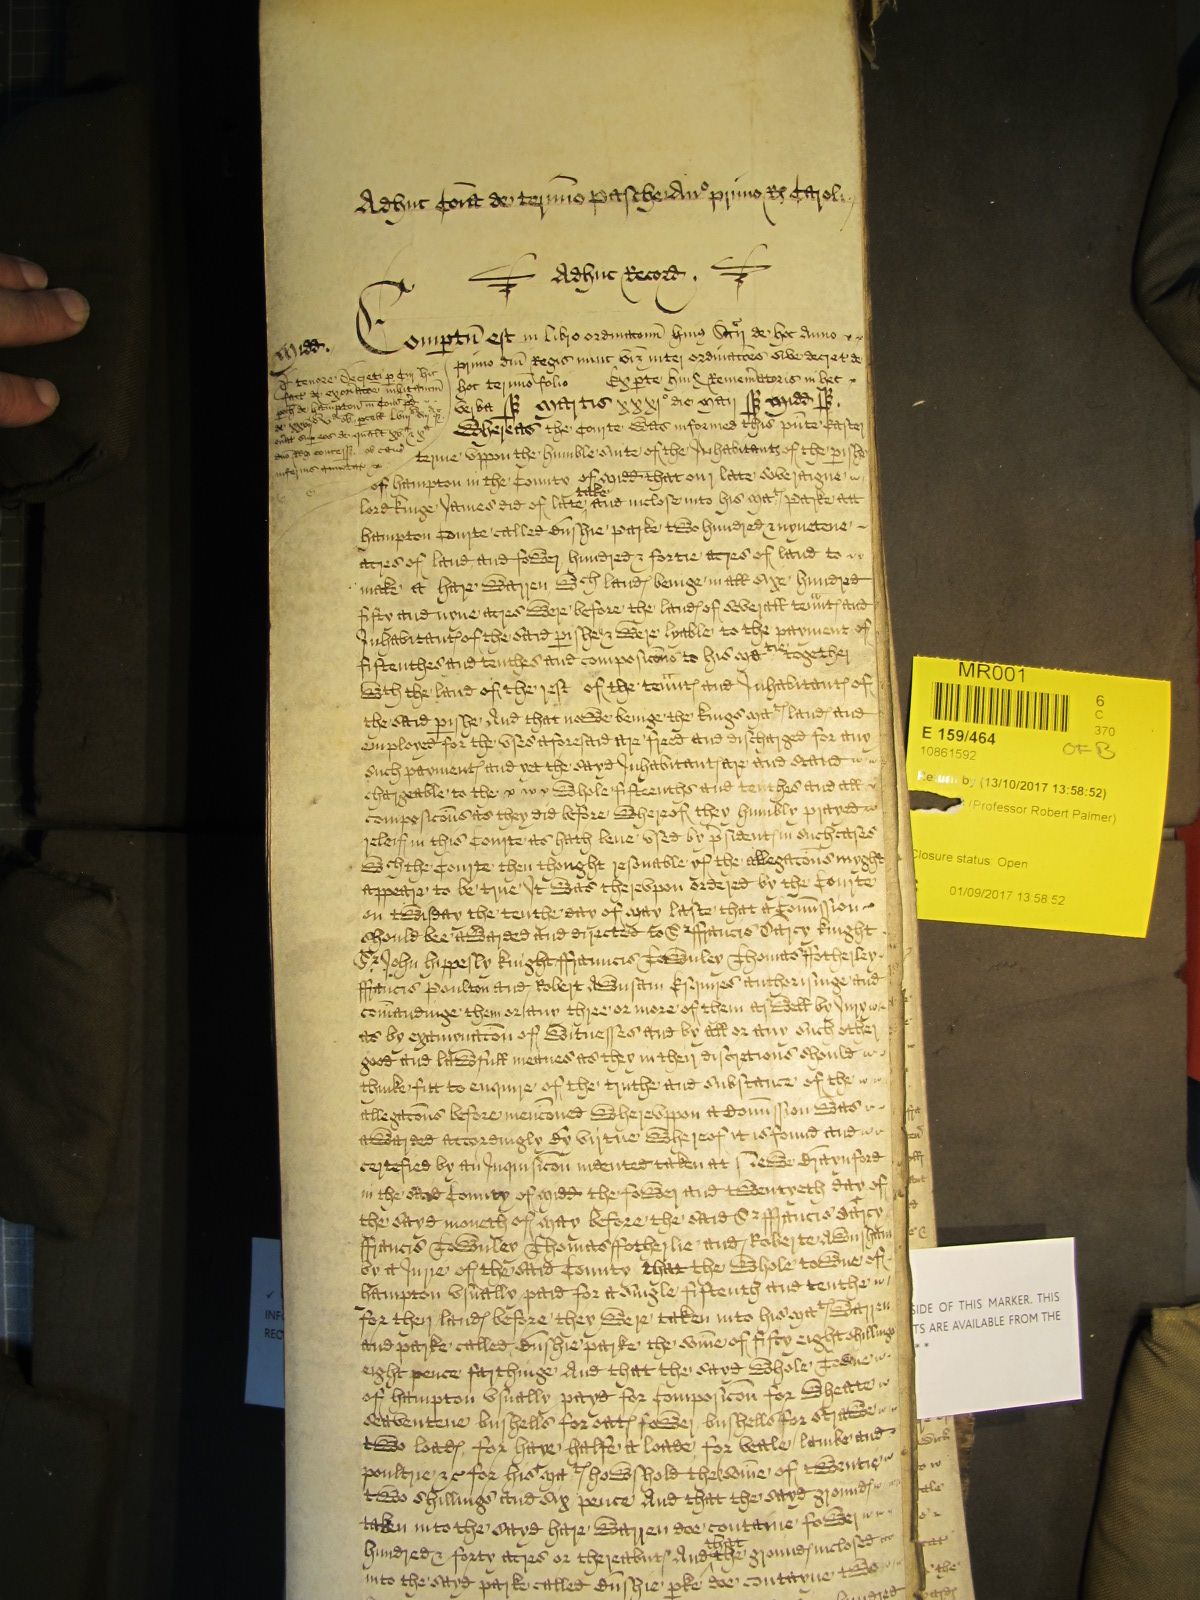 Adhuc Com̄ia de termino Pasche Anº primo R̃ Caroli
Adhuc Record.
Midd.
Compertū est in libro ordinationū huius Scc̃ii de hoc anno
primo dn̄i Regis nunc viz inter ordinac̃ones sive decret de
hoc termino folio Ex pte huius Rememoratoris in hec
verba Martis xxxiº die Maii Midd
Whereas the Courte was informed this pn̄te Easter
terme vppon the humble suite of the Inhabitants of the pishe
of hampton in the County of Midd that our late Soveraigne
lord kinge James did of late take and inclose into his Matς Parke att
hampton Courte called Bushie parke two hundred & nynetene
acres of land and fower hundred & fortie acres of land to
make a hare Warren wch landς beinge in all Sixe hundred
fifty and nyne acres were before the landς of severall ten̄tς and
Inhabitantς of the said pishe & were lyable to the payment of
fiftenthes and tenthes and composic̄ons to his Matie together
wth the land of the rest of the ten̄tς and Inhabitantς of
the said pishe And that nowe beinge the kings Matς landς and
employed for the vses aforesaid are freed and discharged for any
such paymentς and yet the sayd Inhabitantς are and stand
chargeable to the whole fifteenths and tenthes and all
composic̄ons as they did before Whereof they humbly prayed
releif in this Courte as hath bene vsed by psidentς in such cases
Wch the Courte then thought resonable yf the allegac̄ons myght
appeare to be true It was therevpon ordered by the Courte
on tewsday the tenthe day of May laste that a Com̄ission
should bee awarded and directed to Sr ffrancis Darcy knight
Sr John hippesly knight ffrancis Townley Thomas ffotherley
ffrancis Poulton and Robert Awstin Esquires authorisinge and
com̄andinge them or any three or more of them as well by Jury
as by examynac̄on of witnesses and by all or any such other
good and lawfull meanes as they in their discretions should
thinke fitt to enquire of the truthe and substance of the
allegac̄ons before menc̄oned Wherevppon a Com̄ission was
awarded accordingly By virtue Whereof it is found and
certefied by an Inquisic̄on indented taken at Newe Braynford
in the said County of Midd the fower and twentyeth day of
the sayd moneth of May before the said Sr ffrancis Darcy
ffrancis Townley Thomas ffotherlie and Roberte Awstin
by a Jurie of the said County that the whole towne of
hampton vsually paid for a single fiftenth and tenthe
for their landς before they were taken into his Matς Warren
and parke called Bushie parke the som̄e of fifty eight shillings
eight pence farthinge And that the sayd whole Towne
of hampton vsually payd for Composic̄on for Wheate
seaventene bushells for oatς fower bushells for strawe
two loadς for haye halfe a loade for veale lambe and
poultrie &c for his Matς howshold the som̄e of twentie
two shillings and six pence And that the sayd groundς
taken into the sayd hare Warren doe containe fower
hundred & forty acres or thereabutς And that the groundς inclosed
into the sayd parke called Bushie pke doe contayne two
MR001
6
C
370
E 159/464
OF B
10861592
Return by (13/10/2017 13:58:52)
(Professor Robert Palmer)
Closure status Open
01/09/2017 13:58:52
SIDE OF THIS MARKER. THIS
TS ARE AVAILABLE FROM THE
**